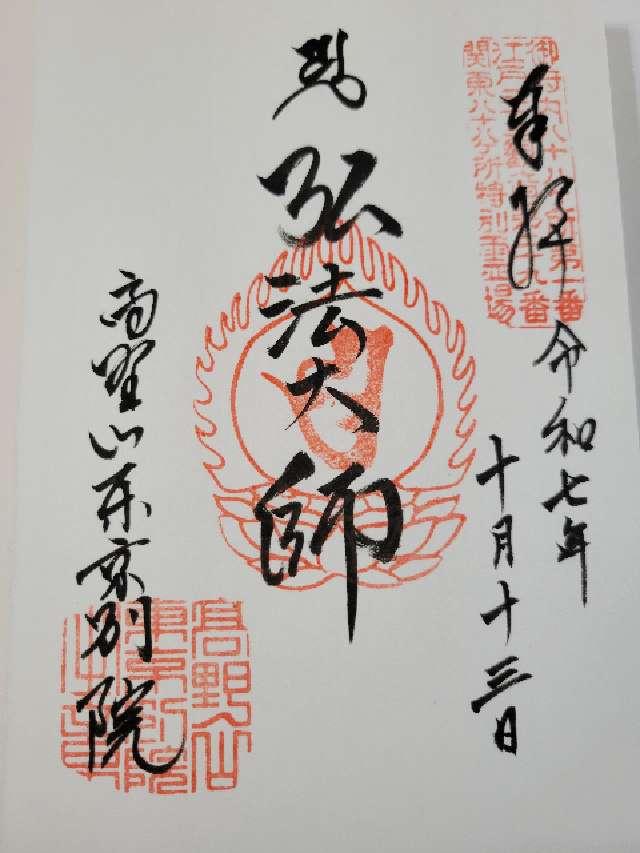 奉拝
令和七年
十月十三日
弘法大師
高野山東京別院
御府内八十八ヶ所第一番
関東八十八ヶ所特別霊場
高野山
東京別院